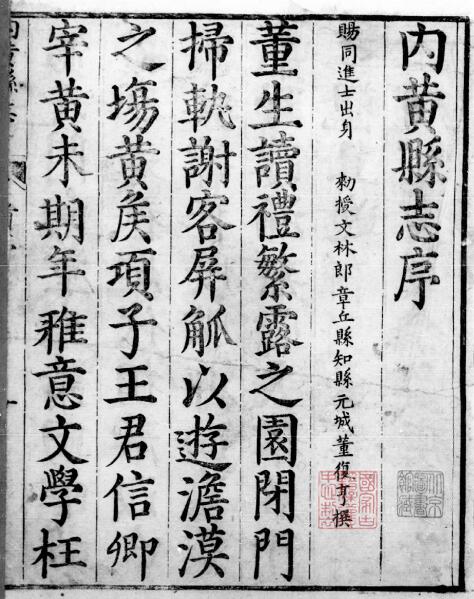 内黄縣志序
賜同進士出身 勑授文林郎章丘縣知縣元城董復亨撰
董生讀禮繁露之園閉門
掃軌謝客屏觚以遊澹漠
之塲黄矦項子王君信卿
宰黄未期年雅意文學枉